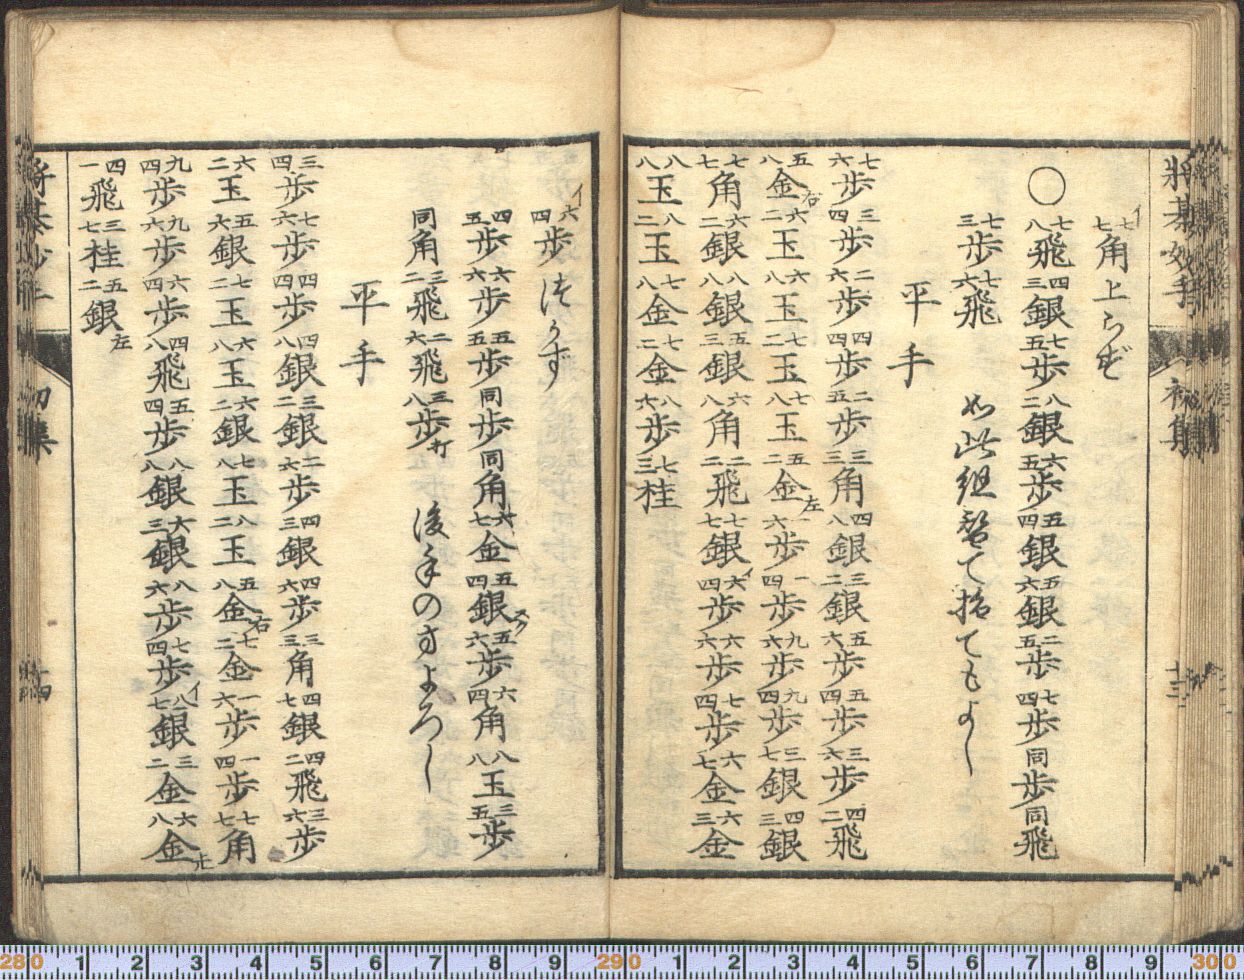 將棊妙手 初集 十三
イ七七角上らば
○七八飛四三銀七五歩八二銀六五歩五四銀五六銀二五歩七四歩同歩同飛
七三歩七六飛 如此組替て指てもよし
平手
七六歩三四歩二六歩四四歩二五歩三三角四八銀三二銀五六歩五四歩三六歩四二飛
五八金右六二玉六八玉七二玉七八玉五二金左一六歩一四歩九六歩九四歩三七銀四三銀
七七角六二銀八八銀五三銀六八角二二飛七七銀イ六四歩六六歩七四歩六七金六三金
八八玉八二玉七八金七二金八六歩七三桂
イ六四歩つかず
四五歩六六歩五五歩同歩同角六七金五四銀五六歩六四角八八玉三五歩
同角三二飛二六飛三八歩打 後手のすよろし
平手
三四歩七六歩四四歩四八銀三二銀二六歩四三銀四六歩三三角四七銀四二飛三六歩
六二玉五六銀七二玉六八玉六二銀七八玉八二玉五八金右七二金一六歩一四歩七七角
九四歩九六歩六四歩四八飛五四歩八八銀六三銀八六歩七四歩イ八七銀三二金六八金上
四一飛三七桂五二銀左
將棊妙手 初集